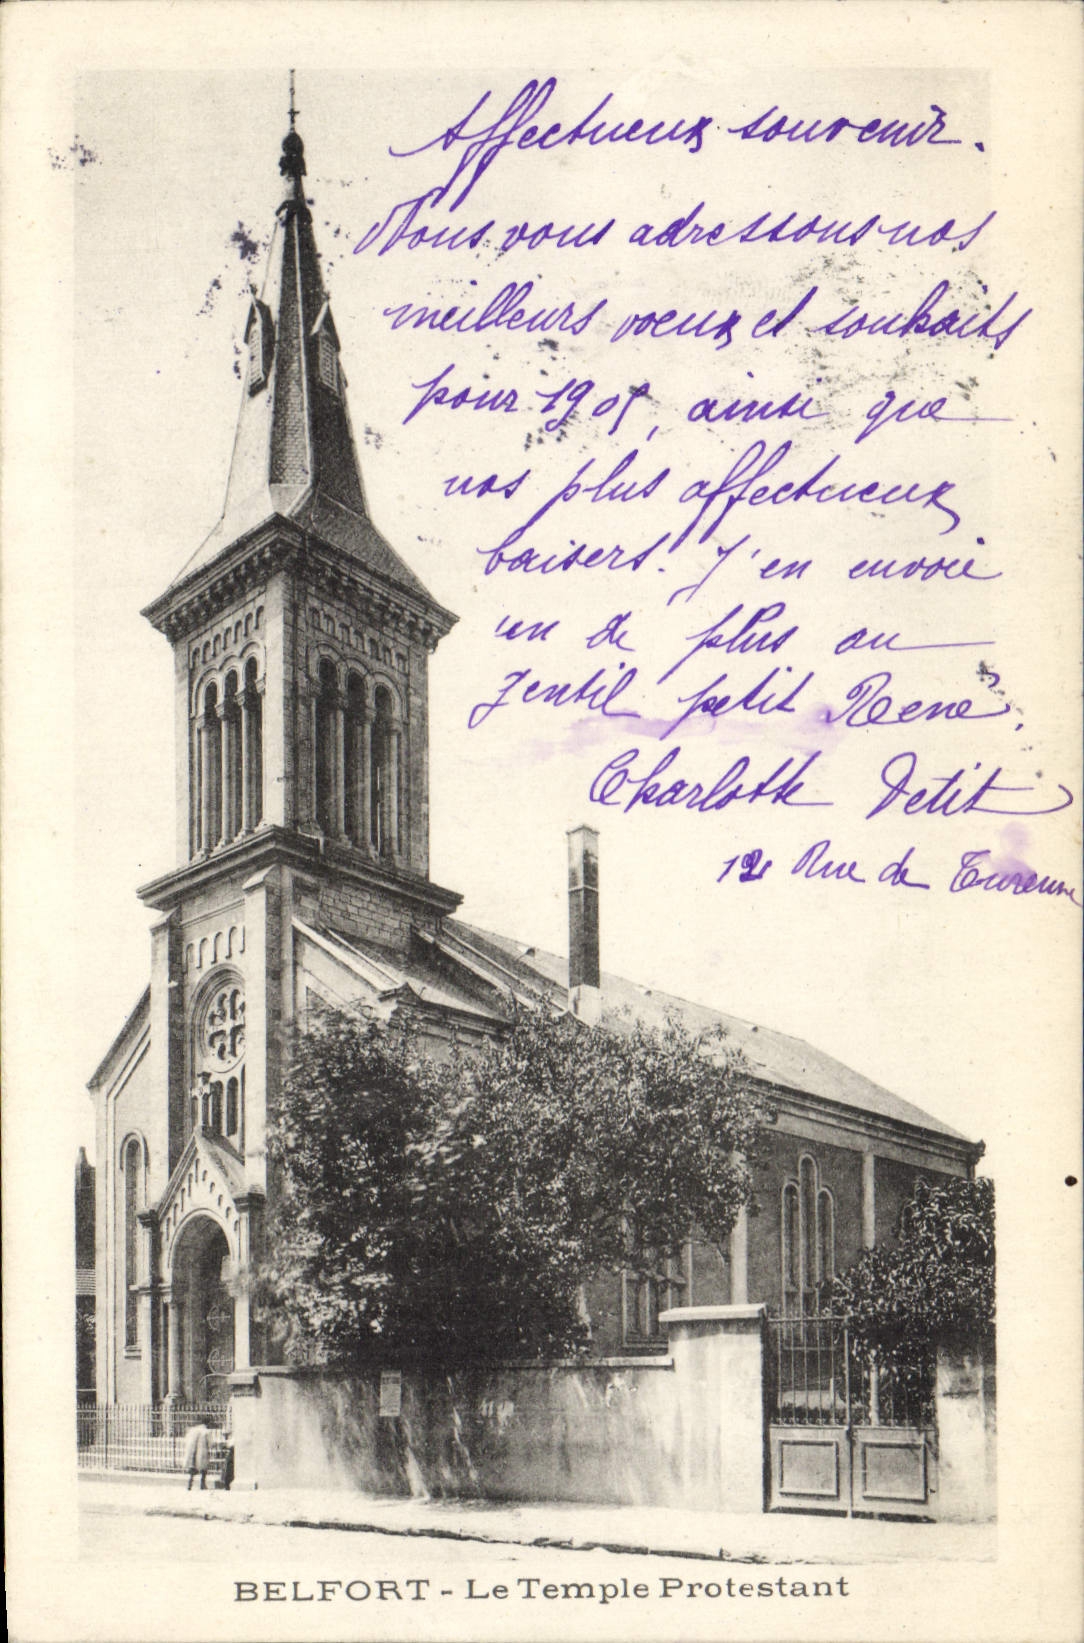 Affectueux souvenir.
Nous vous adressons nos
meilleurs voeux et souhaits
pour 1905, ainsi que
nos plus affectueux
baisers. J'en envoie
un de plus au
gentil petit René.
Charlotte Petit
12 Rue de Turenne
BELFORT - Le Temple Protestant